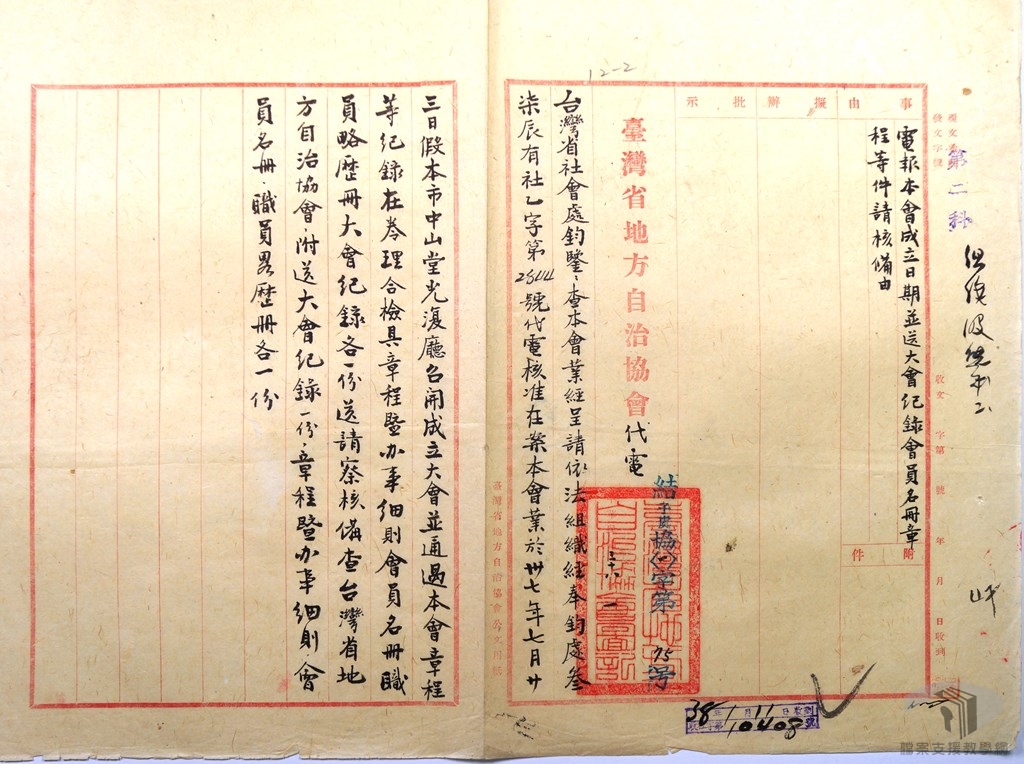 12-2
事由
擬辦
批示
附件
電報本會成立日期並送大會紀錄會員名冊章
程等件請核備由
第二科
收文 字第 號 年 月 日收到
臺灣省地方自治協會代電
協(一)字第75號
台灣省社會處鈞鑒、查本會業經呈請依法組織經奉鈞處叁
柒辰有社乙字第2844號代電核准在案本會業於卅七年七月廿
三日假本市中山堂光復廳召開成立大會並通過本會章程
等紀錄在卷理合檢具章程暨办事細則會員名冊職
員略歷冊大會紀錄各一份送請察核備查台灣省地
方自治協會、附送大會紀錄一份、章程暨办事細則、會
員名冊、職員畧歷冊各一份
38年1月11日收到
10408號
檔案支援教學網